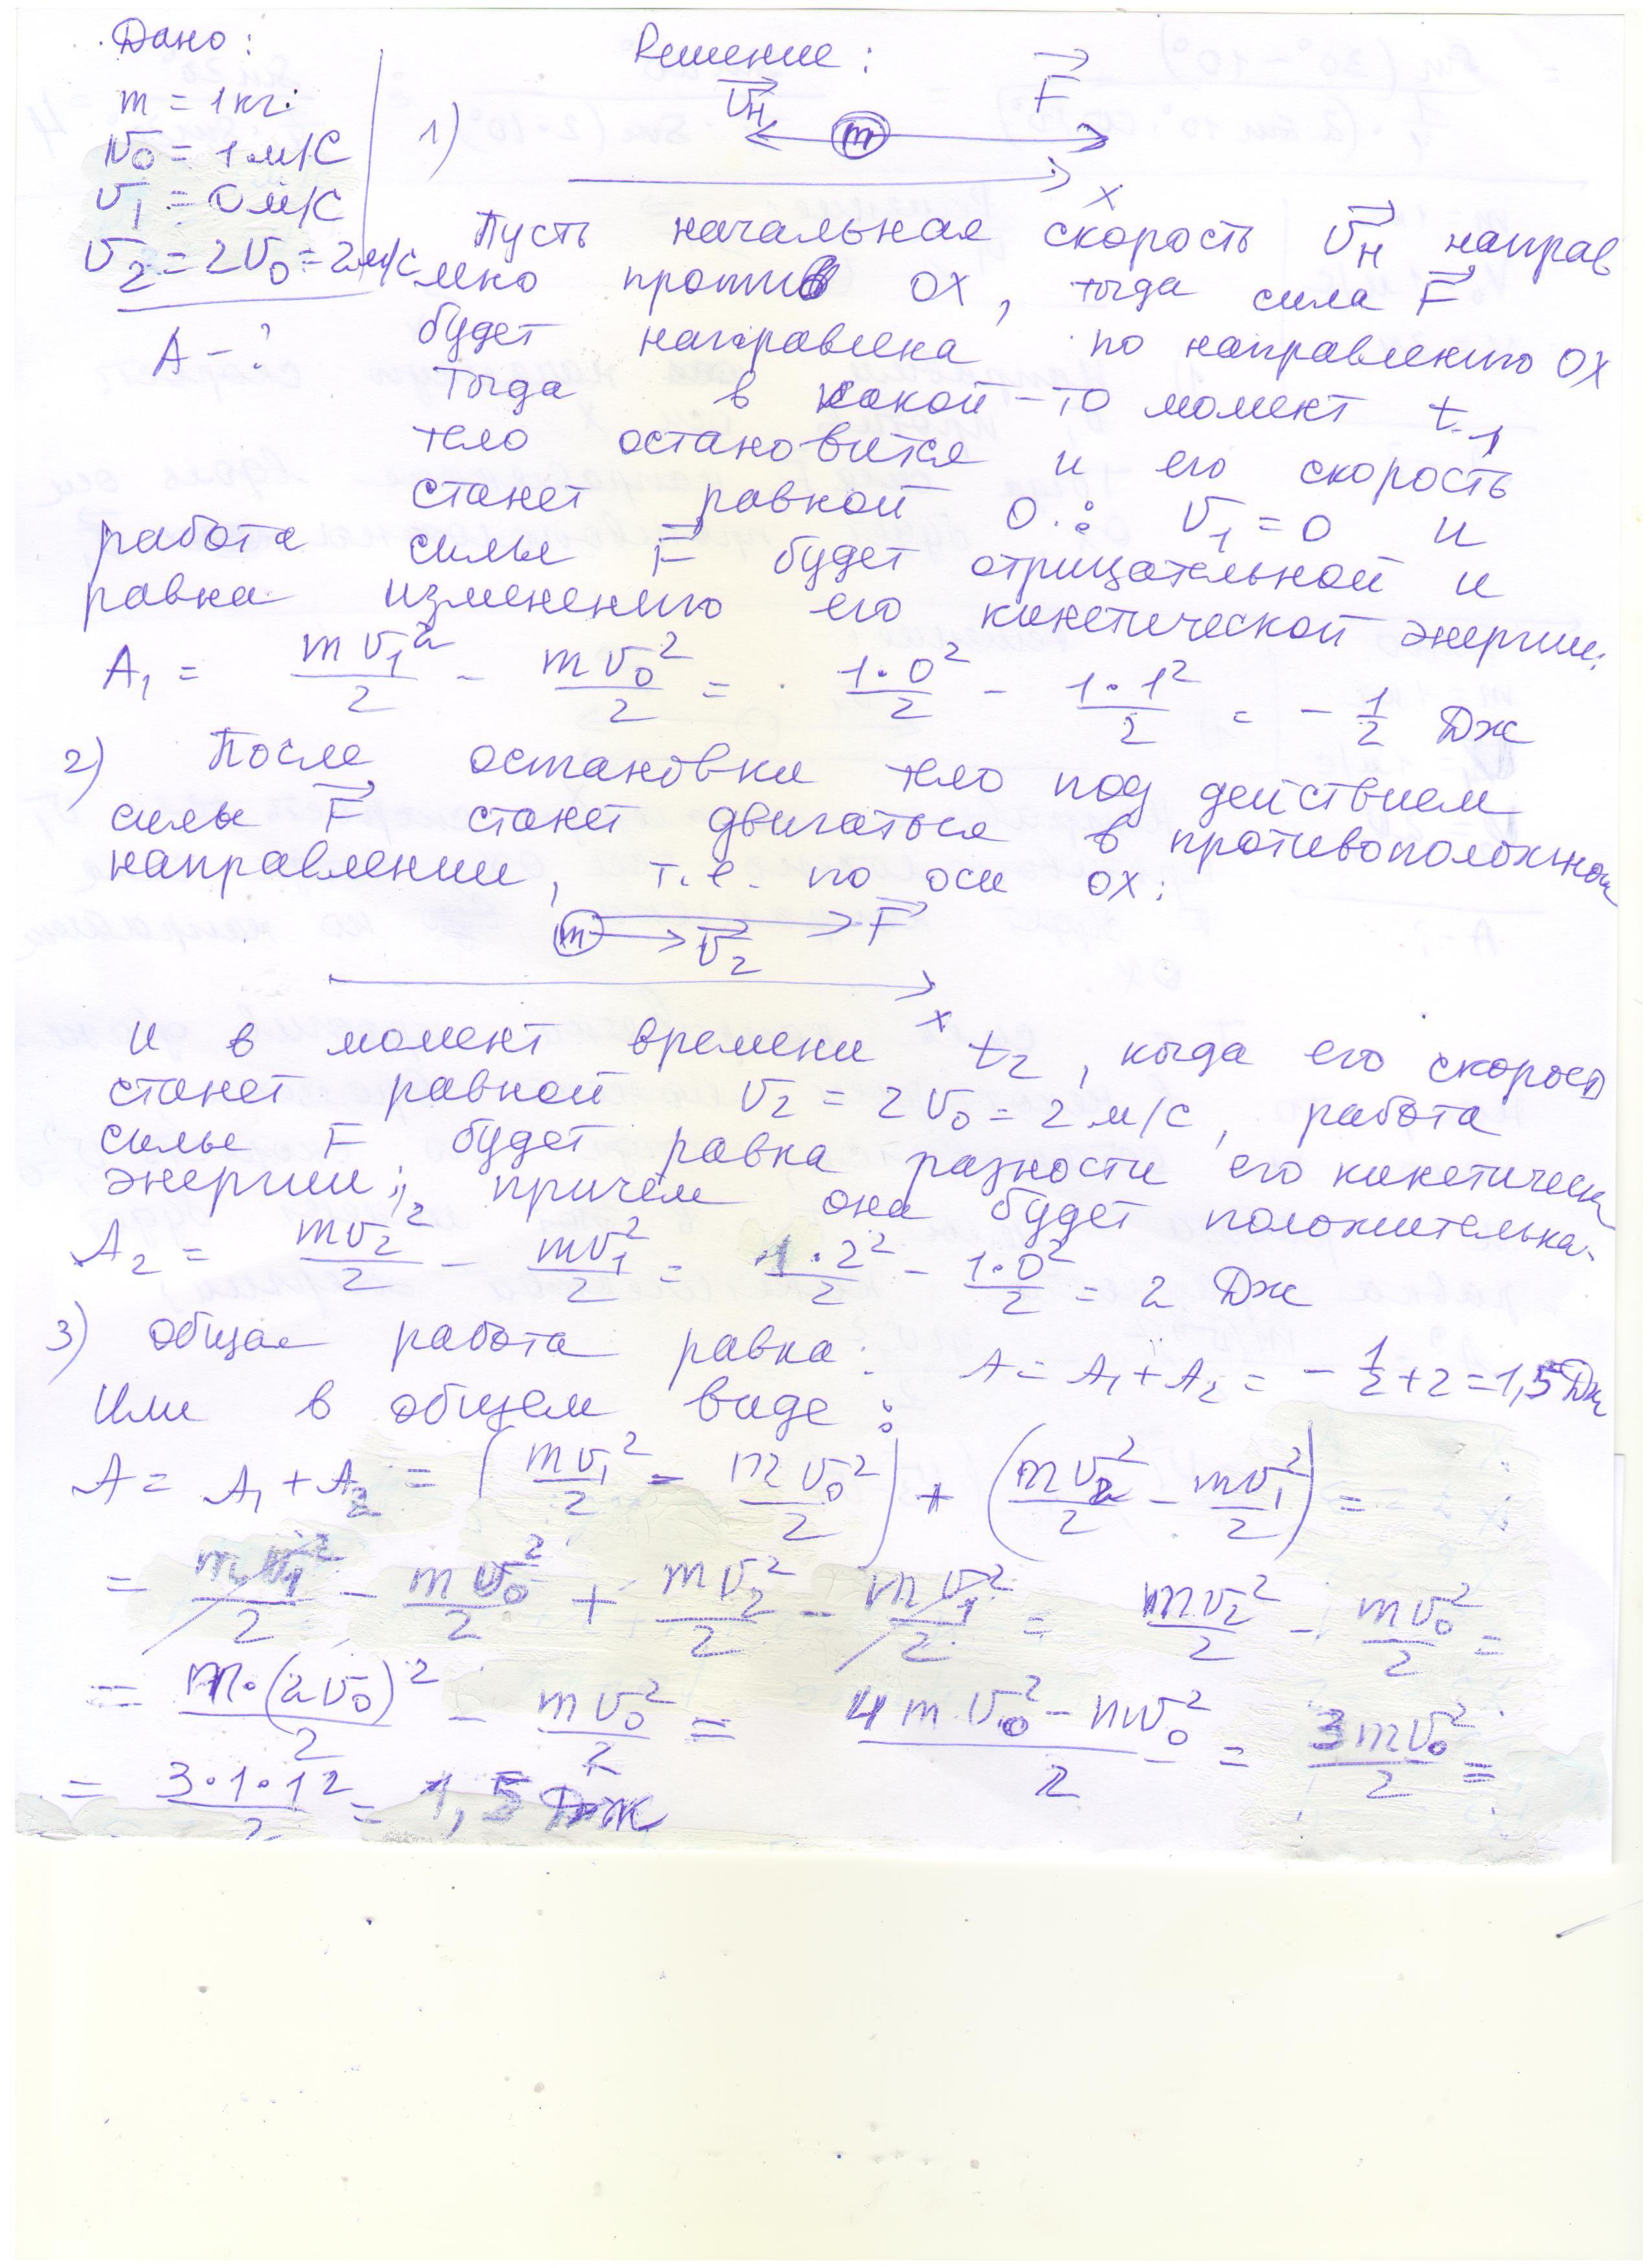 Дано:
m = 1 кг.
v₀ = 1 м/с
v₁ = 0 м/с
v₂ = 2v₀ = 2 м/с
A - ?
Решение:
1)
v⃗н m F⃗
x
Пусть начальная скорость v⃗н направ
лено против OX, тогда сила F⃗
будет направлена по направлению OX
Тогда в какой-то момент t₁
тело остановится и его скорость
станет равной 0: v₁ = 0 и
работа силы F⃗ будет отрицательной и
равна изменению его кинетической энергии:
A₁ = mv₁²/2 - mv₀²/2 = 1·0²/2 - 1·1²/2 = - 1/2 Дж
2) После остановки тело под действием
силы F⃗ станет двигаться в противоположном
направлении, т.е. по оси OX:
m v⃗₂ F⃗
x
И в момент времени t₂, когда его скорость
станет равной v₂ = 2v₀ = 2 м/с, работа
силы F будет равна разности его кинетическ
энергии, причём она будет положительна.
A₂ = mv₂²/2 - mv₁²/2 = 1·2²/2 - 1·0²/2 = 2 Дж
3) Общая работа равна: A = A₁ + A₂ = - 1/2 + 2 = 1,5 Дж
Или в общем виде:
A = A₁ + A₂ = (mv₁²/2 - mv₀²/2) + (mv₂²/2 - mv₁²/2) =
= mv₁²/2 - mv₀²/2 + mv₂²/2 - mv₁²/2 = mv₂²/2 - mv₀²/2 =
= m·(2v₀)²/2 - mv₀²/2 = 4mv₀² - mv₀²/2 = 3mv₀²/2 =
= 3·1·1²/2 = 1,5 Дж